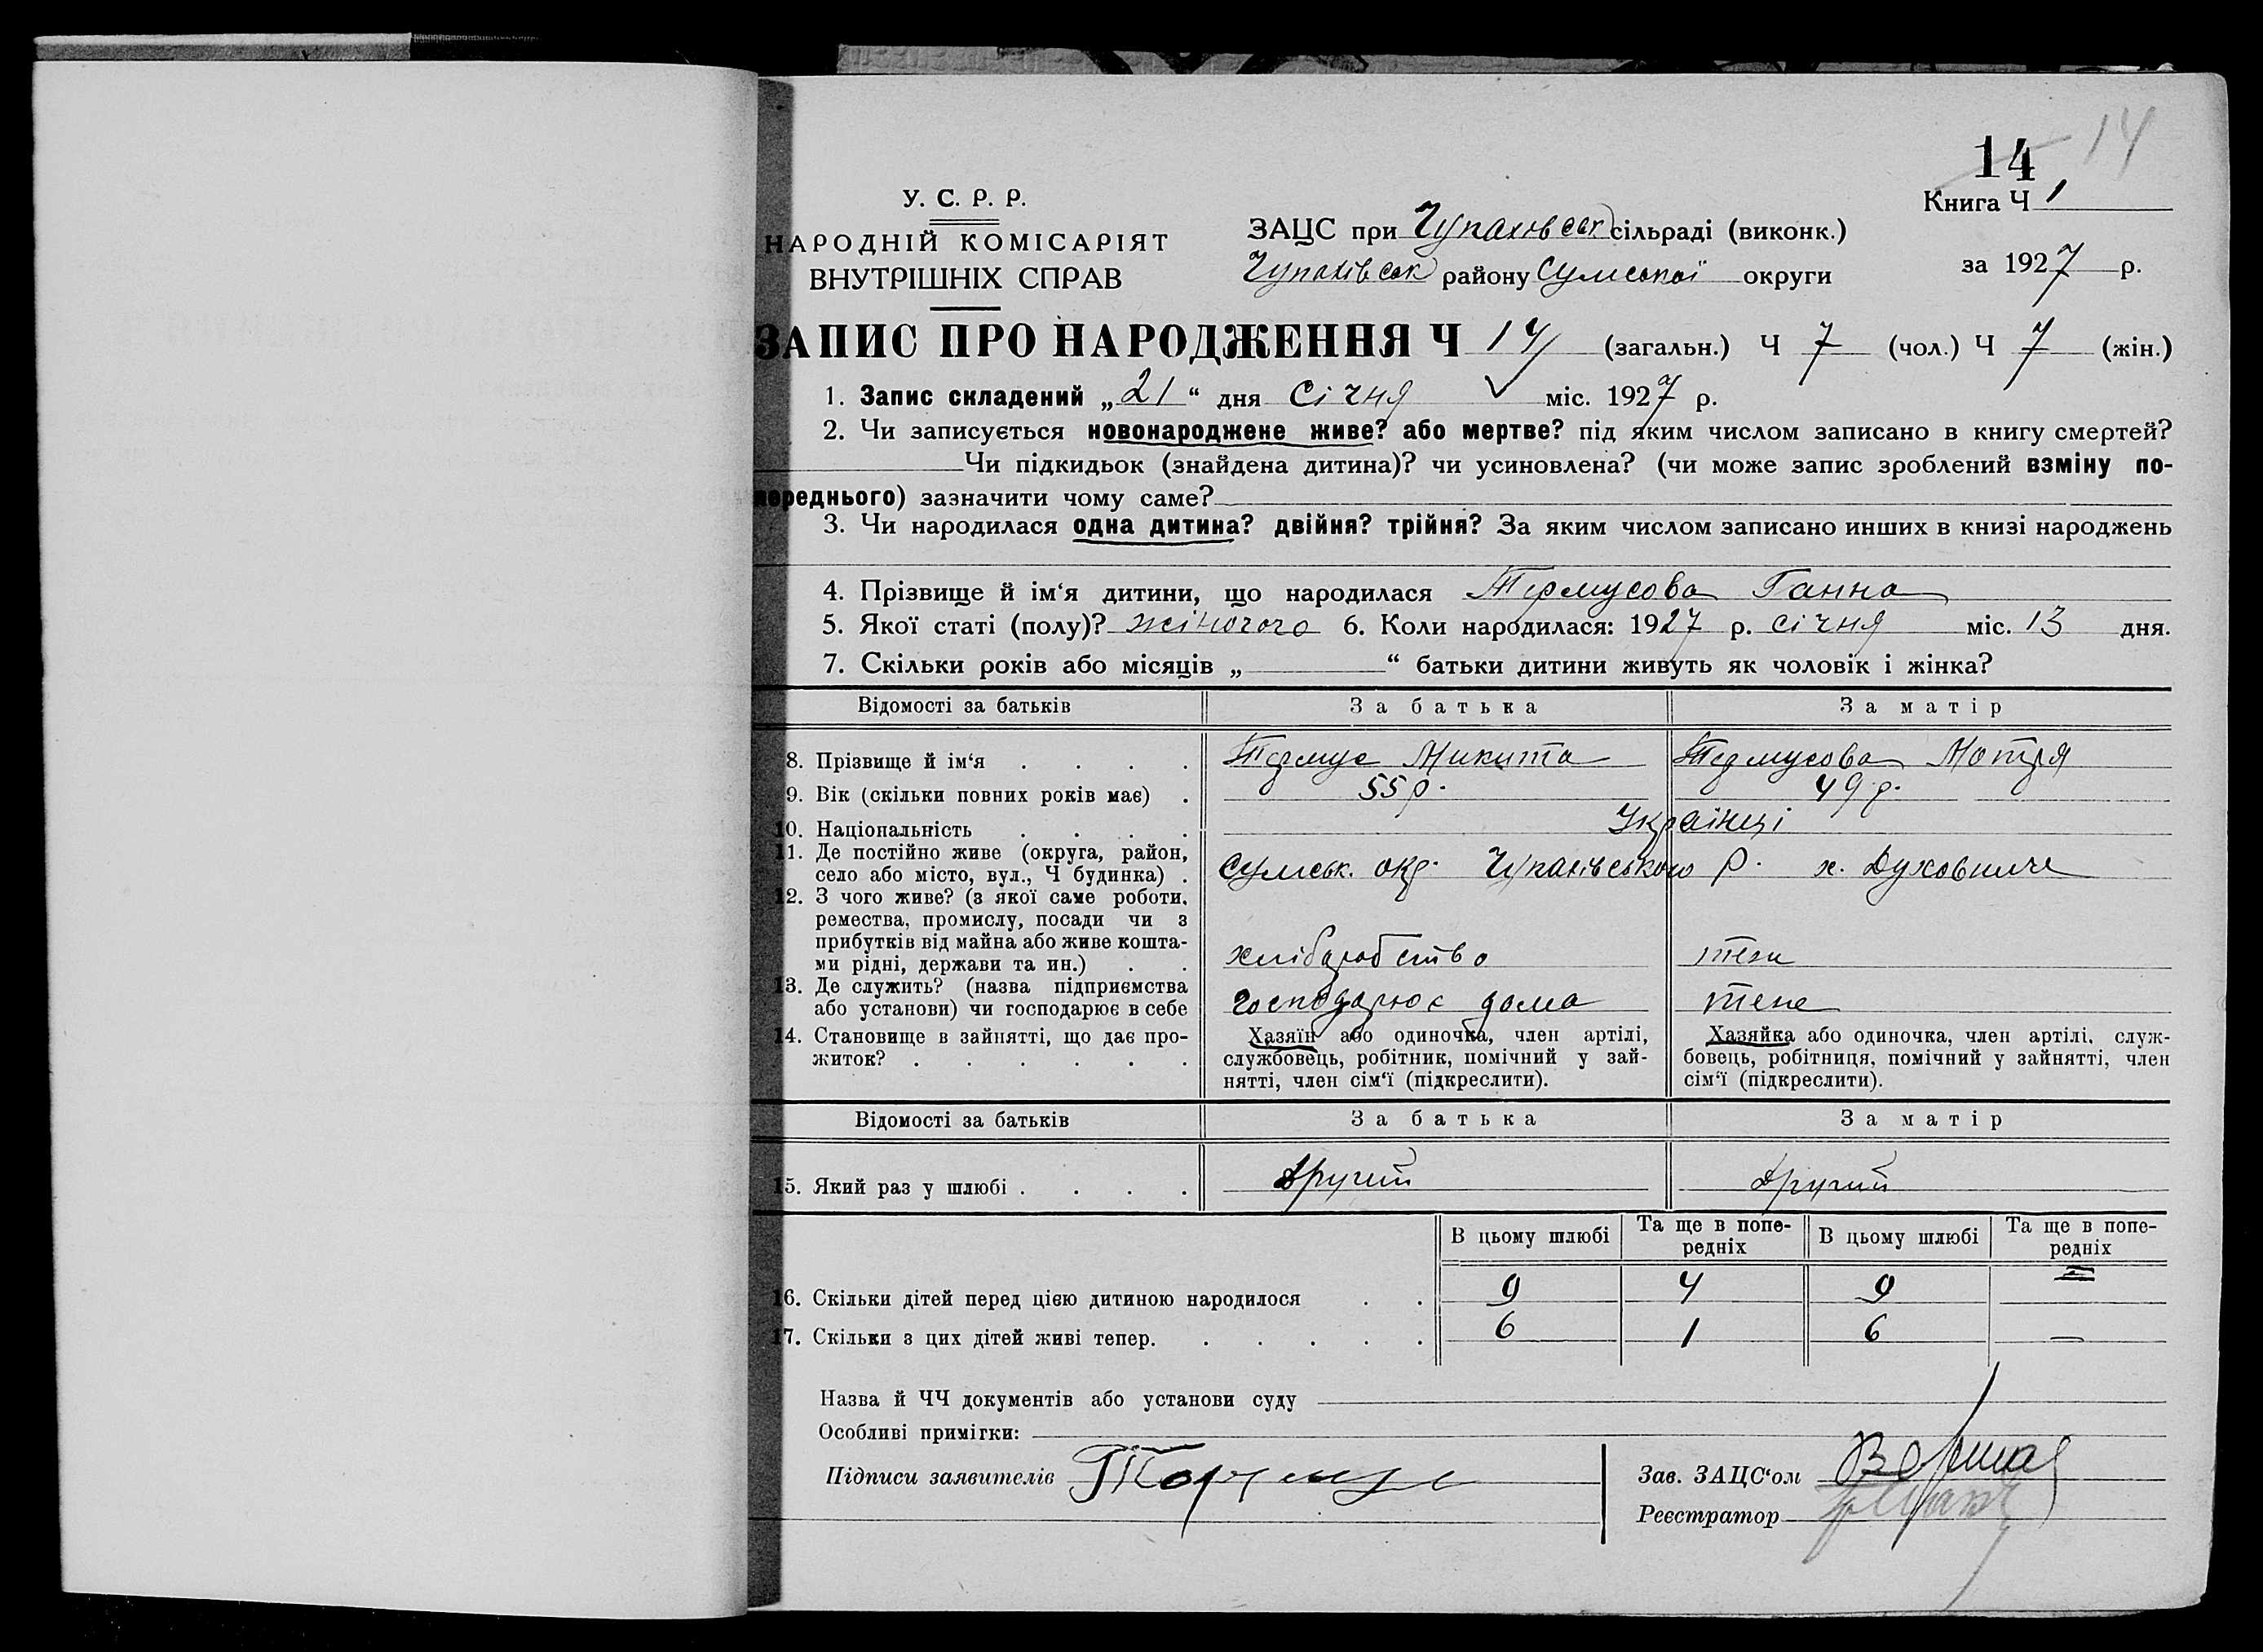 14 14
Книга Ч 1
У. С. Р. Р.
НАРОДНІЙ КОМІСАРІЯТ
ВНУТРІШНІХ СПРАВ
ЗАЦС при Чупахівськ сільраді (виконк.)
Чупахівськ району Сумської округи
за 1927 р.
ЗАПИС ПРО НАРОДЖЕННЯ Ч 14 (загальн.) Ч 7 (чол.) Ч 7 (жін.)
1. Запис складений „21“ дня Січня міс. 1927 р.
2. Чи записується новонароджене живе? або мертве? під яким числом записано в книгу смертей?
Чи підкидьок (знайдена дитина)? чи усиновлена? (чи може запис зроблений взміну по-
переднього) зазначити чому саме?
3. Чи народилася одна дитина? двійня? трійня? За яким числом записано инших в книзі народжень
4. Прізвище й ім‘я дитини, що народилася Термусова Ганна
5. Якої статі (полу)? жіночого 6. Коли народилася: 1927 р. січня міс. 13 дня.
7. Скільки років або місяців „ “ батьки дитини живуть як чоловік і жінка?
Відомості за батьків За батька За матір
8. Прізвище й ім‘я . . . . Термус Микита Термусова Мотря
9. Вік (скільки повних років має) . 55 р. 49 р.
10. Національність . . . . Українці
11. Де постійно живе (округа, район,
село або місто, вул., Ч будинка) . Сумськ. окр. Чупахівського р. х. Духовниче
12. З чого живе? (з якої саме роботи,
ремества, промислу, посади чи з
прибутків від майна або живе кошта-
ми рідні, держави та ин.) . . хліборобство теж
13. Де служить? (назва підприємства
або установи) чи господарює в себе господарює дома теж
14. Становище в зайнятті, що дає про-
житок? . . . . . .
Хазяїн або одиночка, член артілі,
службовець, робітник, помічний у зай-
нятті, член сім‘ї (підкреслити).
Хазяйка або одиночка, член артілі, служ-
бовець, робітниця, помічний у зайнятті, член
сім‘ї (підкреслити).
Відомості за батьків За батька За матір
15. Який раз у шлюбі . . . . другий другий
В цьому шлюбі Та ще в попе-
редніх В цьому шлюбі Та ще в попе-
редніх
16. Скільки дітей перед цією дитиною народилося . . 9 4 9 =
17. Скільки з цих дітей живі тепер. . . . . . 6 1 6 —
Назва й ЧЧ документів або установи суду
Особливі примітки:
Підписи заявителів
Зав. ЗАЦС‘ом
Реєстратор